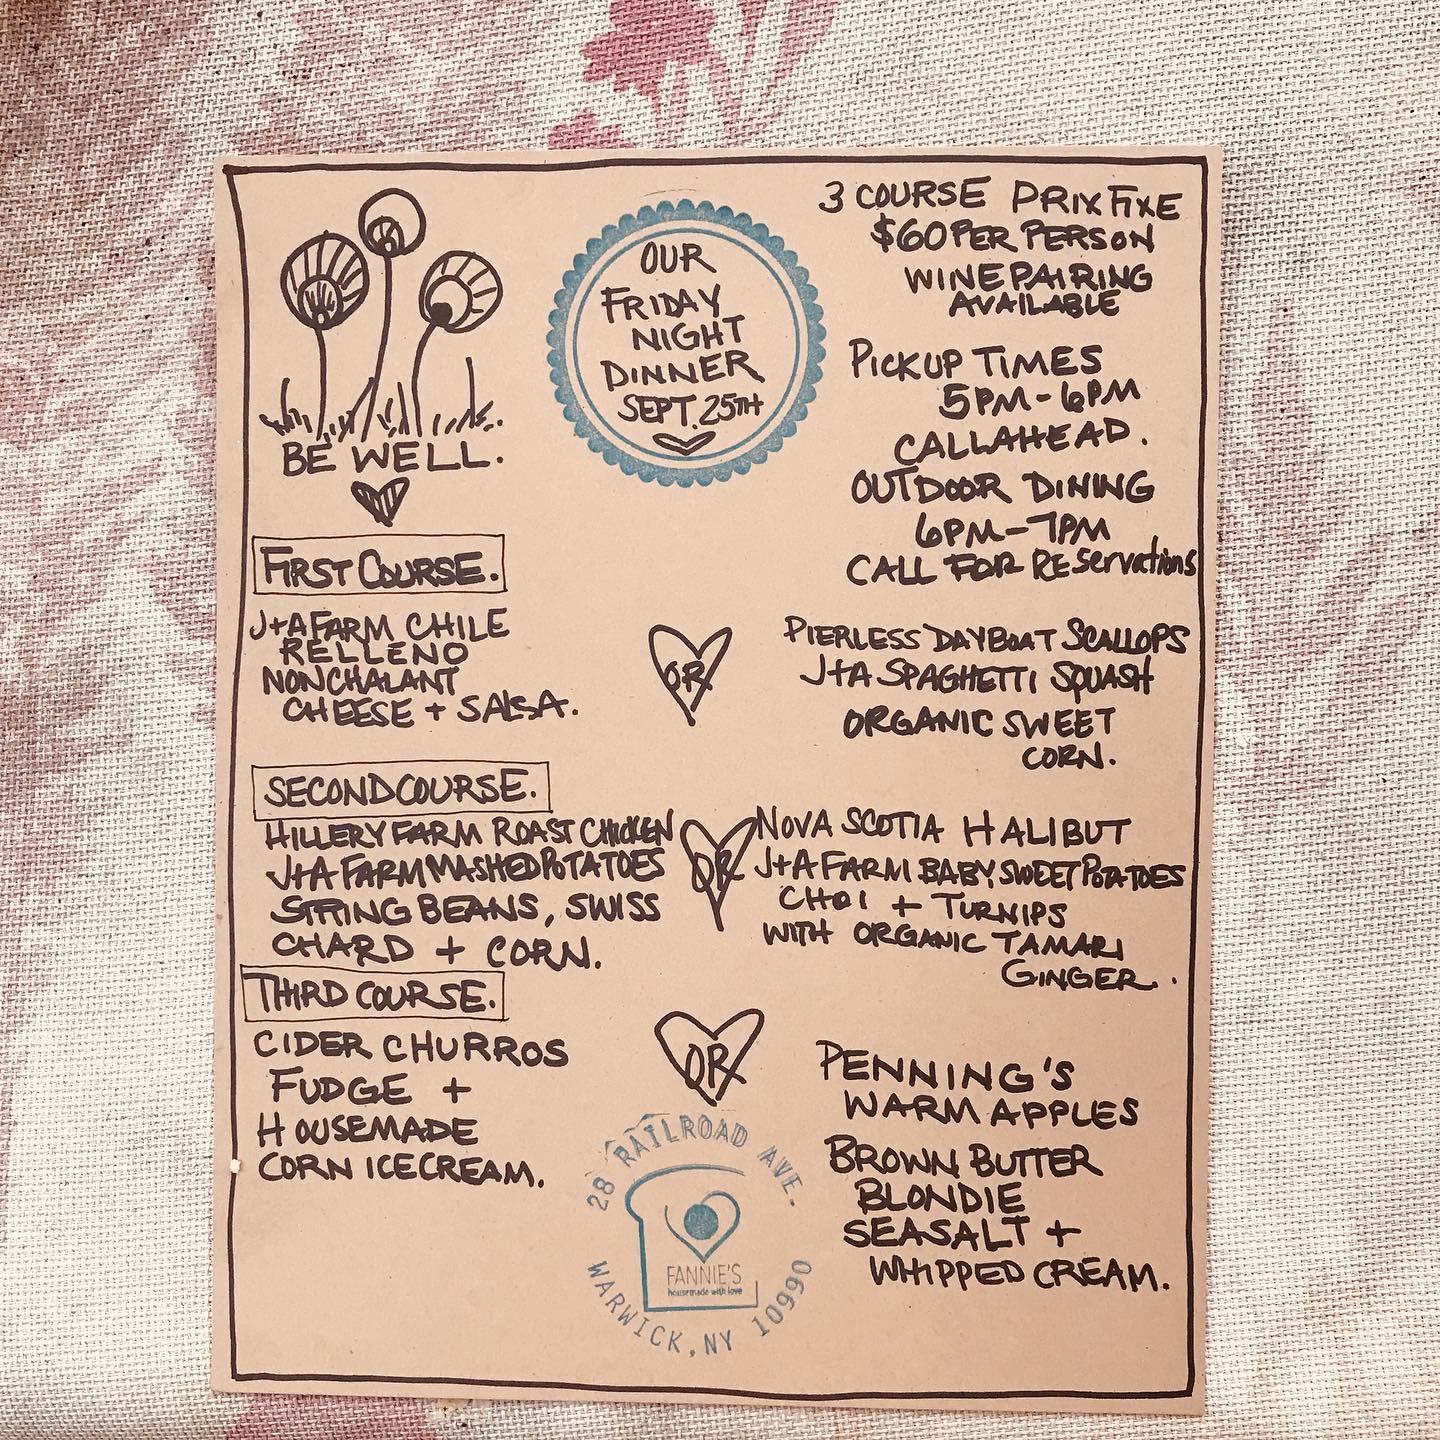 OUR
FRIDAY
NIGHT
DINNER
SEPT. 25TH
3 COURSE PRIX FIXE
$60 PER PERSON
WINE PAIRING
AVAILABLE
PICKUP TIMES
5PM-6PM
CALL AHEAD.
OUTDOOR DINING
6PM-7PM
CALL FOR REservations
BE WELL.
FIRST COURSE.
J+A FARM CHILE
RELLENO
NONCHALANT
CHEESE + SALSA.
OR
PIERLESS DAYBOAT SCALLOPS
J+A SPAGHETTI SQUASH
ORGANIC SWEET
CORN.
SECOND COURSE.
HILLERY FARM ROAST CHICKEN
J+A FARM MASHED POTATOES
STRING BEANS, SWISS
CHARD + CORN.
OR
NOVA SCOTIA HALIBUT
J+A FARM BABY SWEET POTATOES
CHOI + TURNIPS
WITH ORGANIC TAMARI
GINGER.
THIRD COURSE.
CIDER CHURROS
FUDGE +
HOUSEMADE
CORN ICE CREAM.
OR
PENNING'S
WARM APPLES
BROWN BUTTER
BLONDIE
SEASALT +
WHIPPED CREAM.
28 RAILROAD AVE.
FANNIE'S
housemade with love
WARWICK, NY 10990